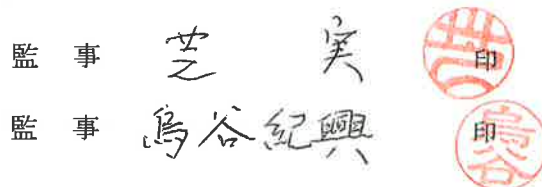 監 事 芝 実 印
監 事 鳥谷紀興 印